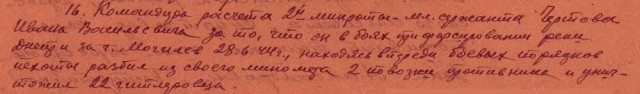 16. Командира расчета 2й минроты - мл. сержанта Перстова
Ивана Васильевича за то, что он в боях при форсировании реки
Днепр и за г. Могилев 28.6.44г., находясь впереди боевых порядков
пехоты разбил из своего миномета 2 повозки противника и унич-
тожил 22 гитлеровца.